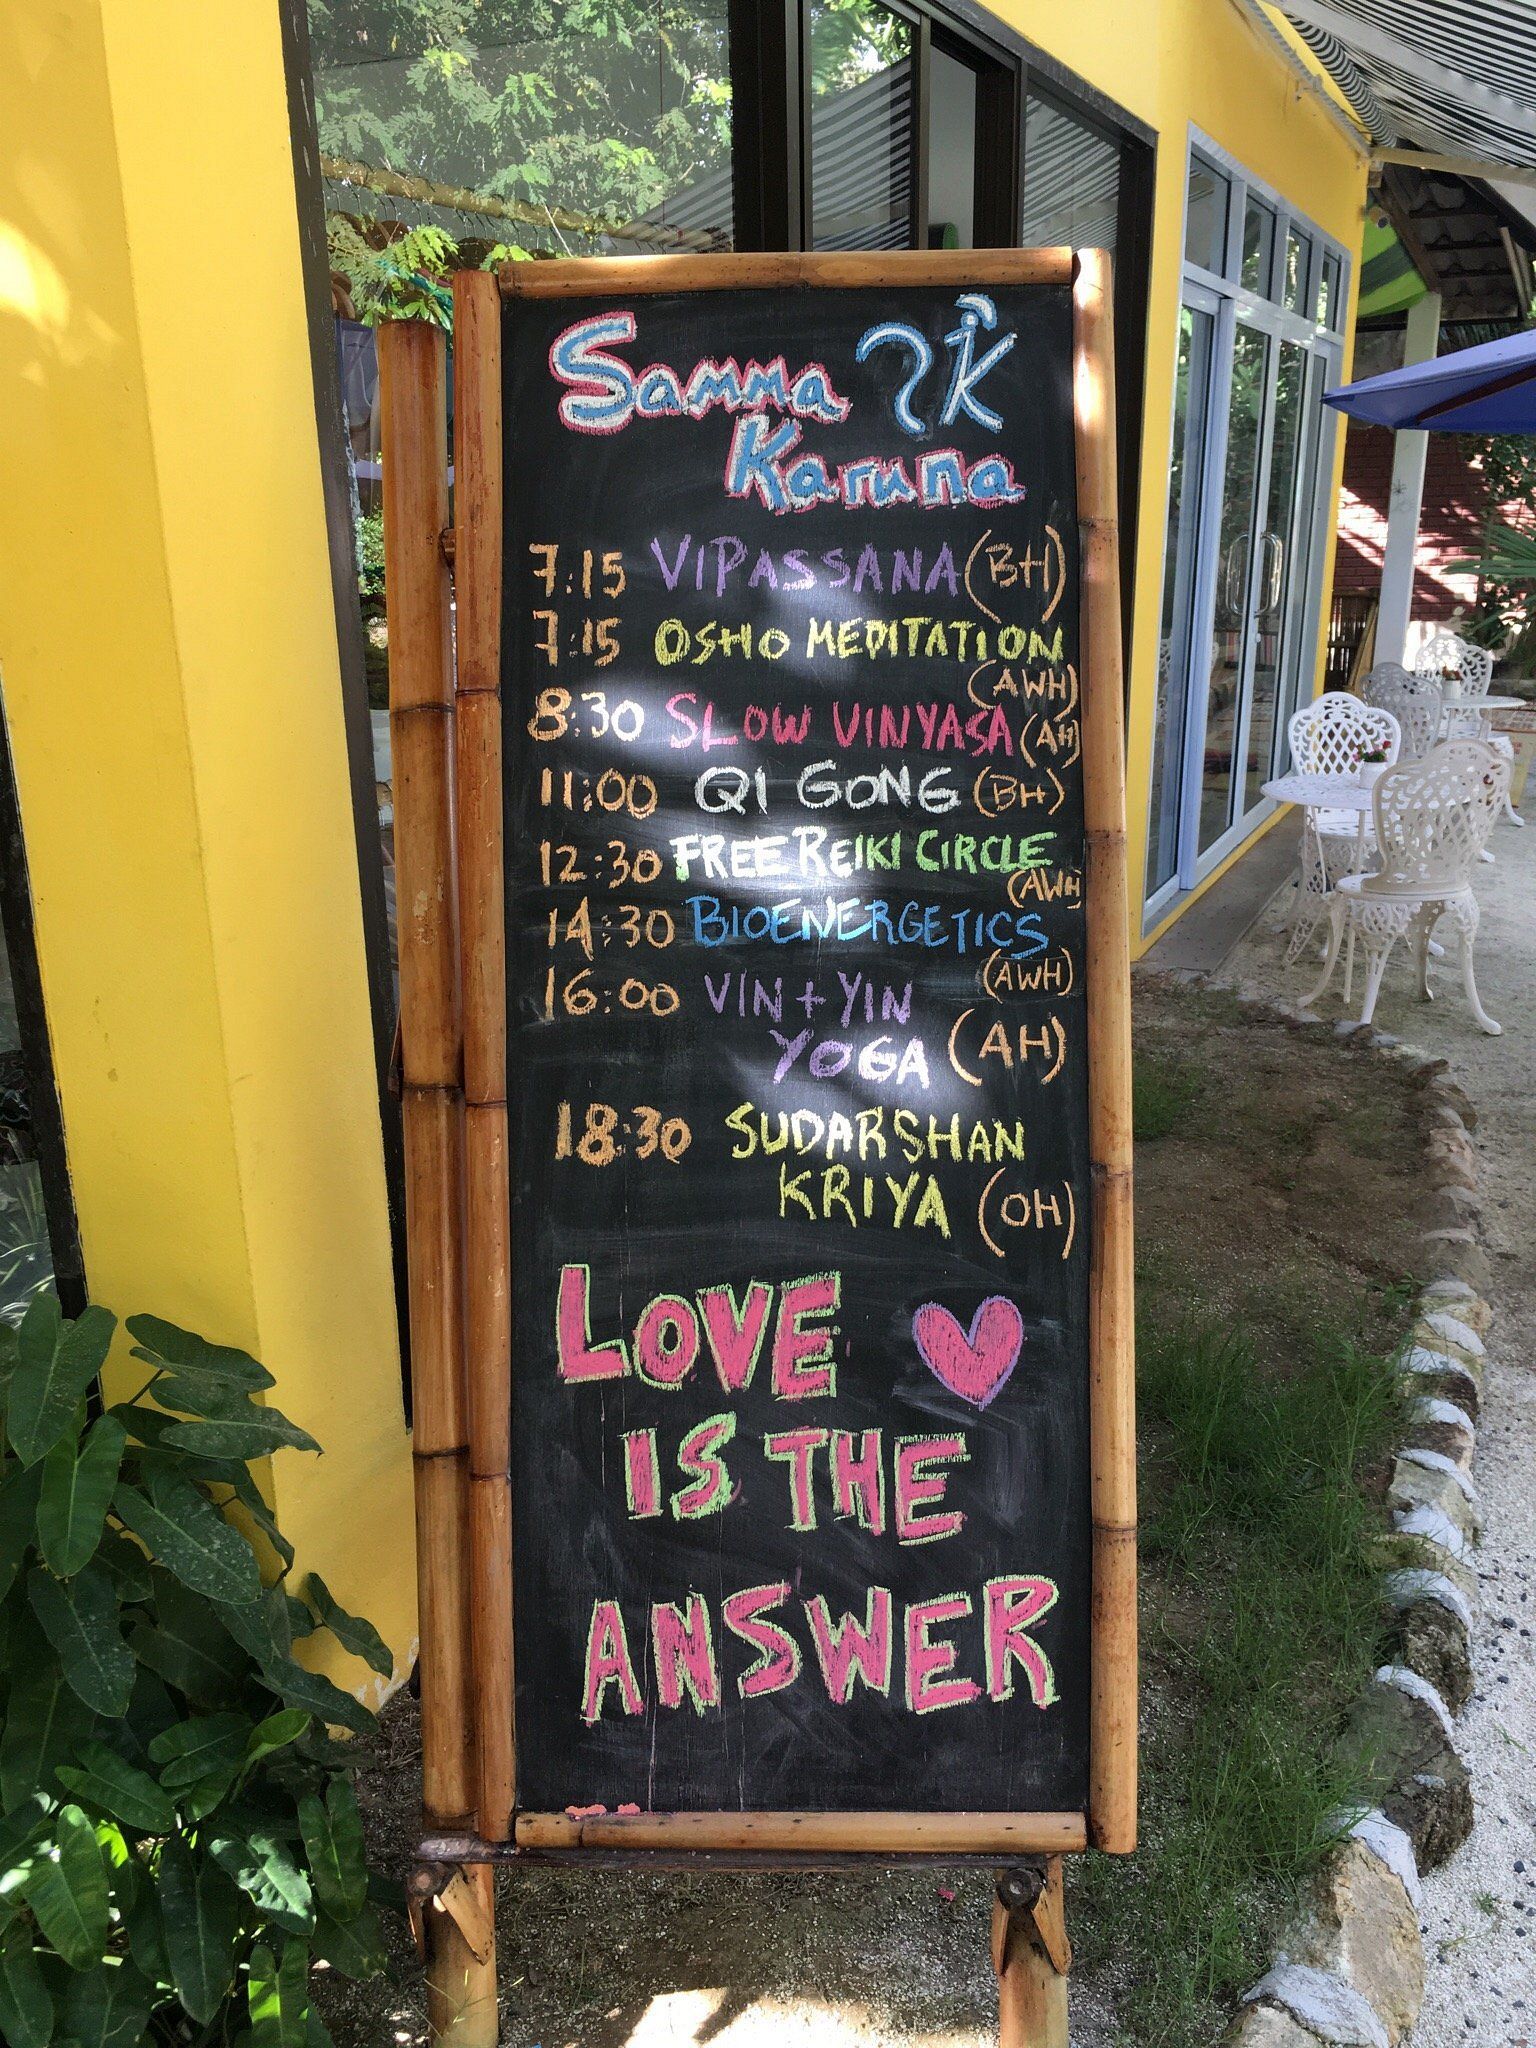 Samma
Karuna
7:15 VIPASSANA (BH)
7:15 OSHO MEDITATION
(AWH)
8:30 SLOW VINYASA (AH)
11:00 QI GONG (BH)
12:30 FREE REIKI CIRCLE
(AWH)
14:30 BIOENERGETICS
(AWH)
16:00 VIN + YIN
YOGA (AH)
18:30 SUDARSHAN
KRIYA (OH)
LOVE
IS THE
ANSWER